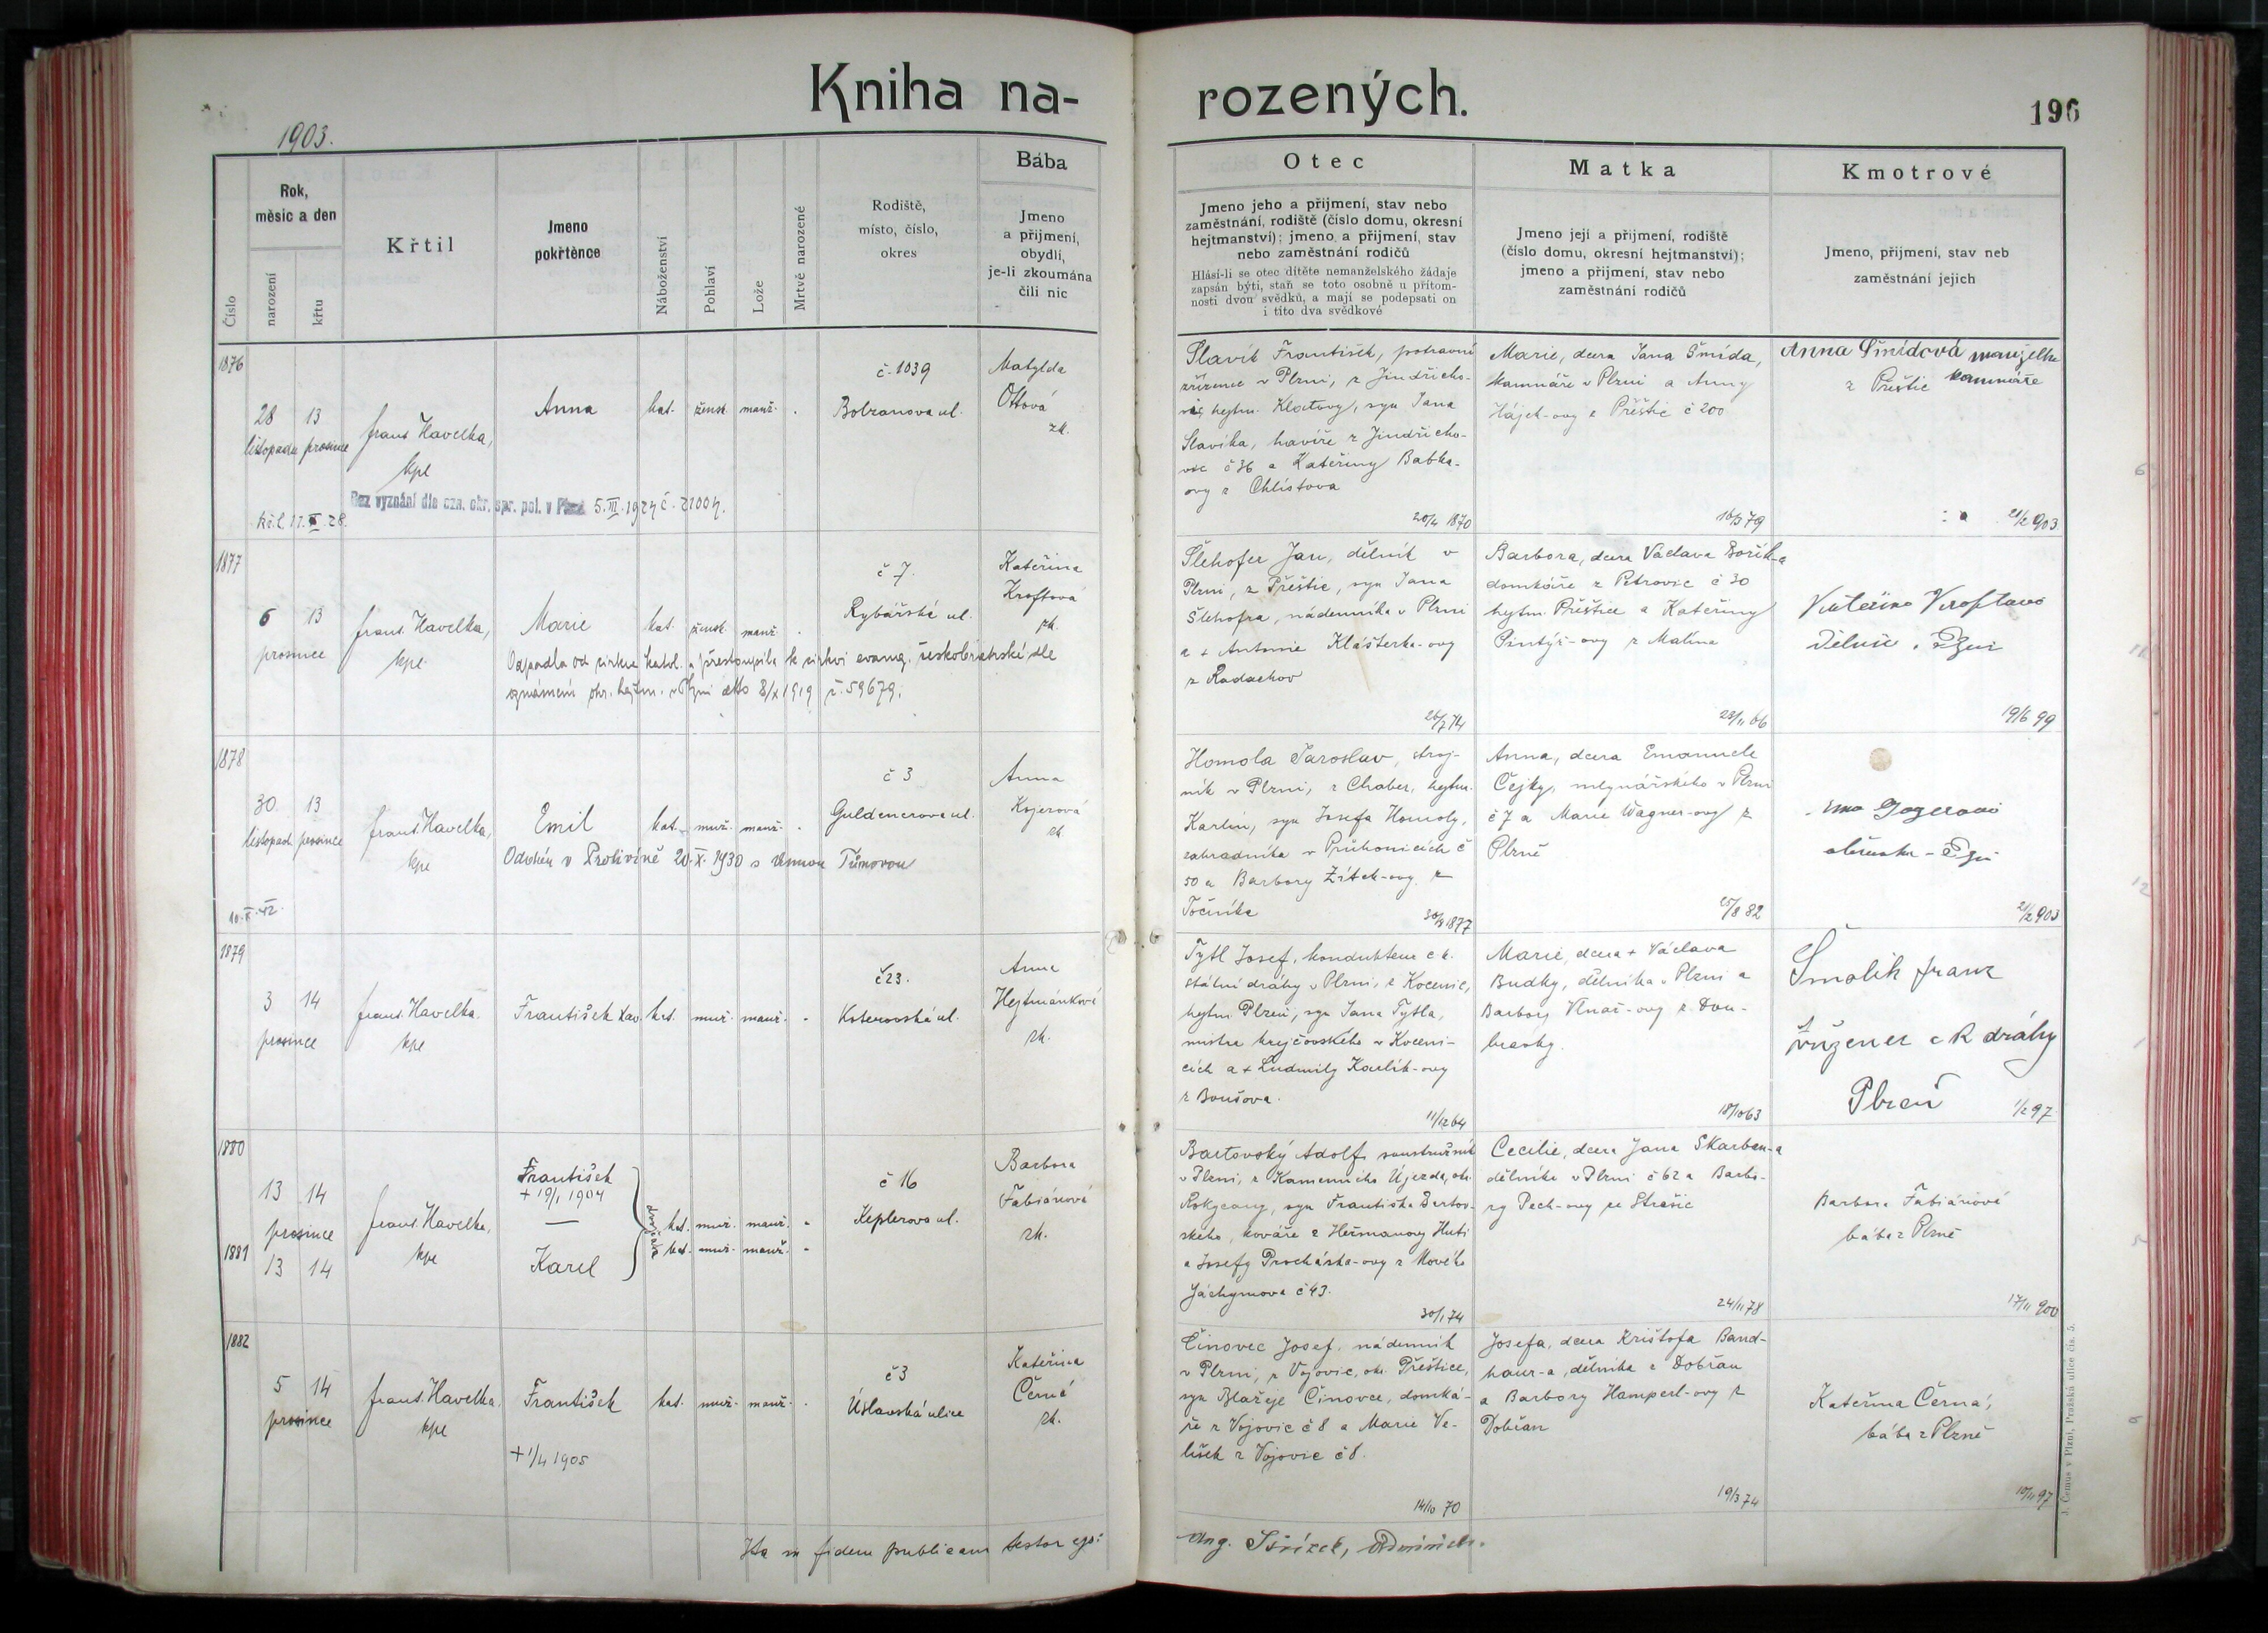 Kniha na-
rozených.
196
1903.
Číslo
Rok,
měsíc a den
narození
křtu
Křtil
Jmeno
pokřtěnce
Náboženství
Pohlaví
Lože
Mrtvě narozené
Rodiště,
místo, číslo,
okres
Bába
Jmeno
a přijmení,
obydlí,
je-li zkoumána
čili nic
Otec
Jmeno jeho a přijmení, stav nebo
zaměstnání, rodiště (číslo domu, okresní
hejtmanství); jmeno a přijmení, stav
nebo zaměstnání rodičů
Hlásí-li se otec dítěte nemanželského žádaje
zapsán býti, staň se toto osobně u přítom-
nosti dvou svědků, a mají se podepsati on
i tito dva svědkové
Matka
Jmeno její a přijmení, rodiště
(číslo domu, okresní hejtmanství);
jmeno a přijmení, stav nebo
zaměstnání rodičů
Kmotrové
Jmeno, přijmení, stav neb
zaměstnání jejich
1876
28 13
listopadu prosince
frant. Havelka,
kpl
Anna
kat. žensk. manž.
č. 1039
Bolzanova ul.
Matylda
Ottová
zk.
Bez vyznání dle ozn. okr. spr. pol. v Plzni 5.III.1924 č. 21004.
Slavík František, potravní
zřízenec v Plzni, z Jindřicho-
vic hejtm. Klatovy, syn Jana
Slavíka, havíře z Jindřicho-
vic č 36 a Kateřiny Babka-
ovy z Chlistova
20/4 1870
Marie, dcera Jana Šmída,
kamnáře v Plzni a Anny
Hájek-ovy z Přeštic č 200
16/3 79
Anna Šmídová manželka
z Přeštic kamnáře
21/2 903
1877
6 13
prosince
frant. Havelka,
kpl.
Marie
kat. žensk. manž.
č 7.
Rybářská ul.
Kateřina
Kroftová
zk.
Odpadla od církve katol. a přestoupila k církvi evang. českobratrské dle
oznámení okr. hejtm. v Plzni dtto 8/X 1919 č. 59679.
Šlehofer Jan, dělník v
Plzni, z Přeštic, syn Jana
Šlehofra, nádenníka v Plzni
a + Antonie Klášterka-ovy
z Radachov
26/7 74
Barbora, dcera Václava Bořík-a
domkáře z Petrovic č 30
hejtm. Přeštice a Kateřiny
Pintýř-ovy z Malína
23/11 66
Kateřina Kroftová
19/6 99
1878
30. 13
listopad. prosince
frant. Havelka,
kpe
Emil
kat. muž. manž.
č 3
Guldenerova ul.
Anna
Kojerová
zk
Oddán v Protivíně 20.X.1930 s Annou Tůmovou
Homola Jaroslav, stroj-
ník v Plzni, z Chaber, hejtm.
Karlín, syn Josefa Homoly,
zahradníka v Průhonicích č
50 a Barbory Žítek-ovy z
Točníka
30/3 1877
Anna, dcera Emanuele
Čejky, mlynářského v Plzni
č 7 a Marie Wagner-ovy z
Plzně
25/8 82
21/2 903
1879
3 14
prosince
frant. Havelka.
kpe
František Xav.
kat. muž. manž.
č 23.
Koterovská ul.
Anna
Hejtmánková
zk.
Tytl Josef, kondukteur c. k.
státní dráhy v Plzni, z Kocenic,
hejtm. Plzeň, syn Jana Tytla,
mistra krejčovského v Koceni-
cích a + Ludmily Karlík-ovy
z Boušova.
11/12 64
Marie, dcera + Václava
Budky, dělníka v Plzni a
Barbory Vlnař-ovy z Dou-
bravky.
18/10 63
Šmolík franz
zřízenec c k dráhy
Plzeň
1/2 97
1880
13 14
prosince
1881
13 14
frant. Havelka,
kpe
František
+ 19/1 1904
—
Karel
dvojčata
kat. muž. manž.
kat. muž. manž.
č 16
Keplerova ul.
Barbora
Fabiánová
zk.
Bartovský Adolf, soustružník
v Plzni, z Kamenného Újezda, okr.
Rokycany, syn Františka Bartov-
ského, kováře z Heřmanovy Huti
a Josefy Procházka-ovy z Nového
Jáchymova č 43.
30/1 74
Cecilie, dcera Jana Skarban-a
dělníka v Plzni č 62 a Barbo-
ry Pech-ovy ze Strašic
24/11 78
Barbora Fabiánová
bába z Plzně
17/11 900
1882
5 14
prosince
frant. Havelka,
kpe
František
+ 1/4 1905
kat. muž. manž.
č 3
Úslavská ulice
Kateřina
Černá
zk.
Činovec Josef, nádenník
v Plzni, z Vojovic, okr. Přeštice,
syn Blažeje Činovce, domká-
ře z Vojovic č 8 a Marie Ve-
líšek z Vojovic č 8.
14/10 70
Josefa, dcera Krištofa Band-
haur-a, dělníka z Dobřan
a Barbory Hamperl-ovy z
Dobřan
19/3 74
Kateřina Černá,
bába z Plzně
10/11 97
Ita in fidem publicam testor ego:
J. Černus v Plzni, Pražská ulice čís. 5.